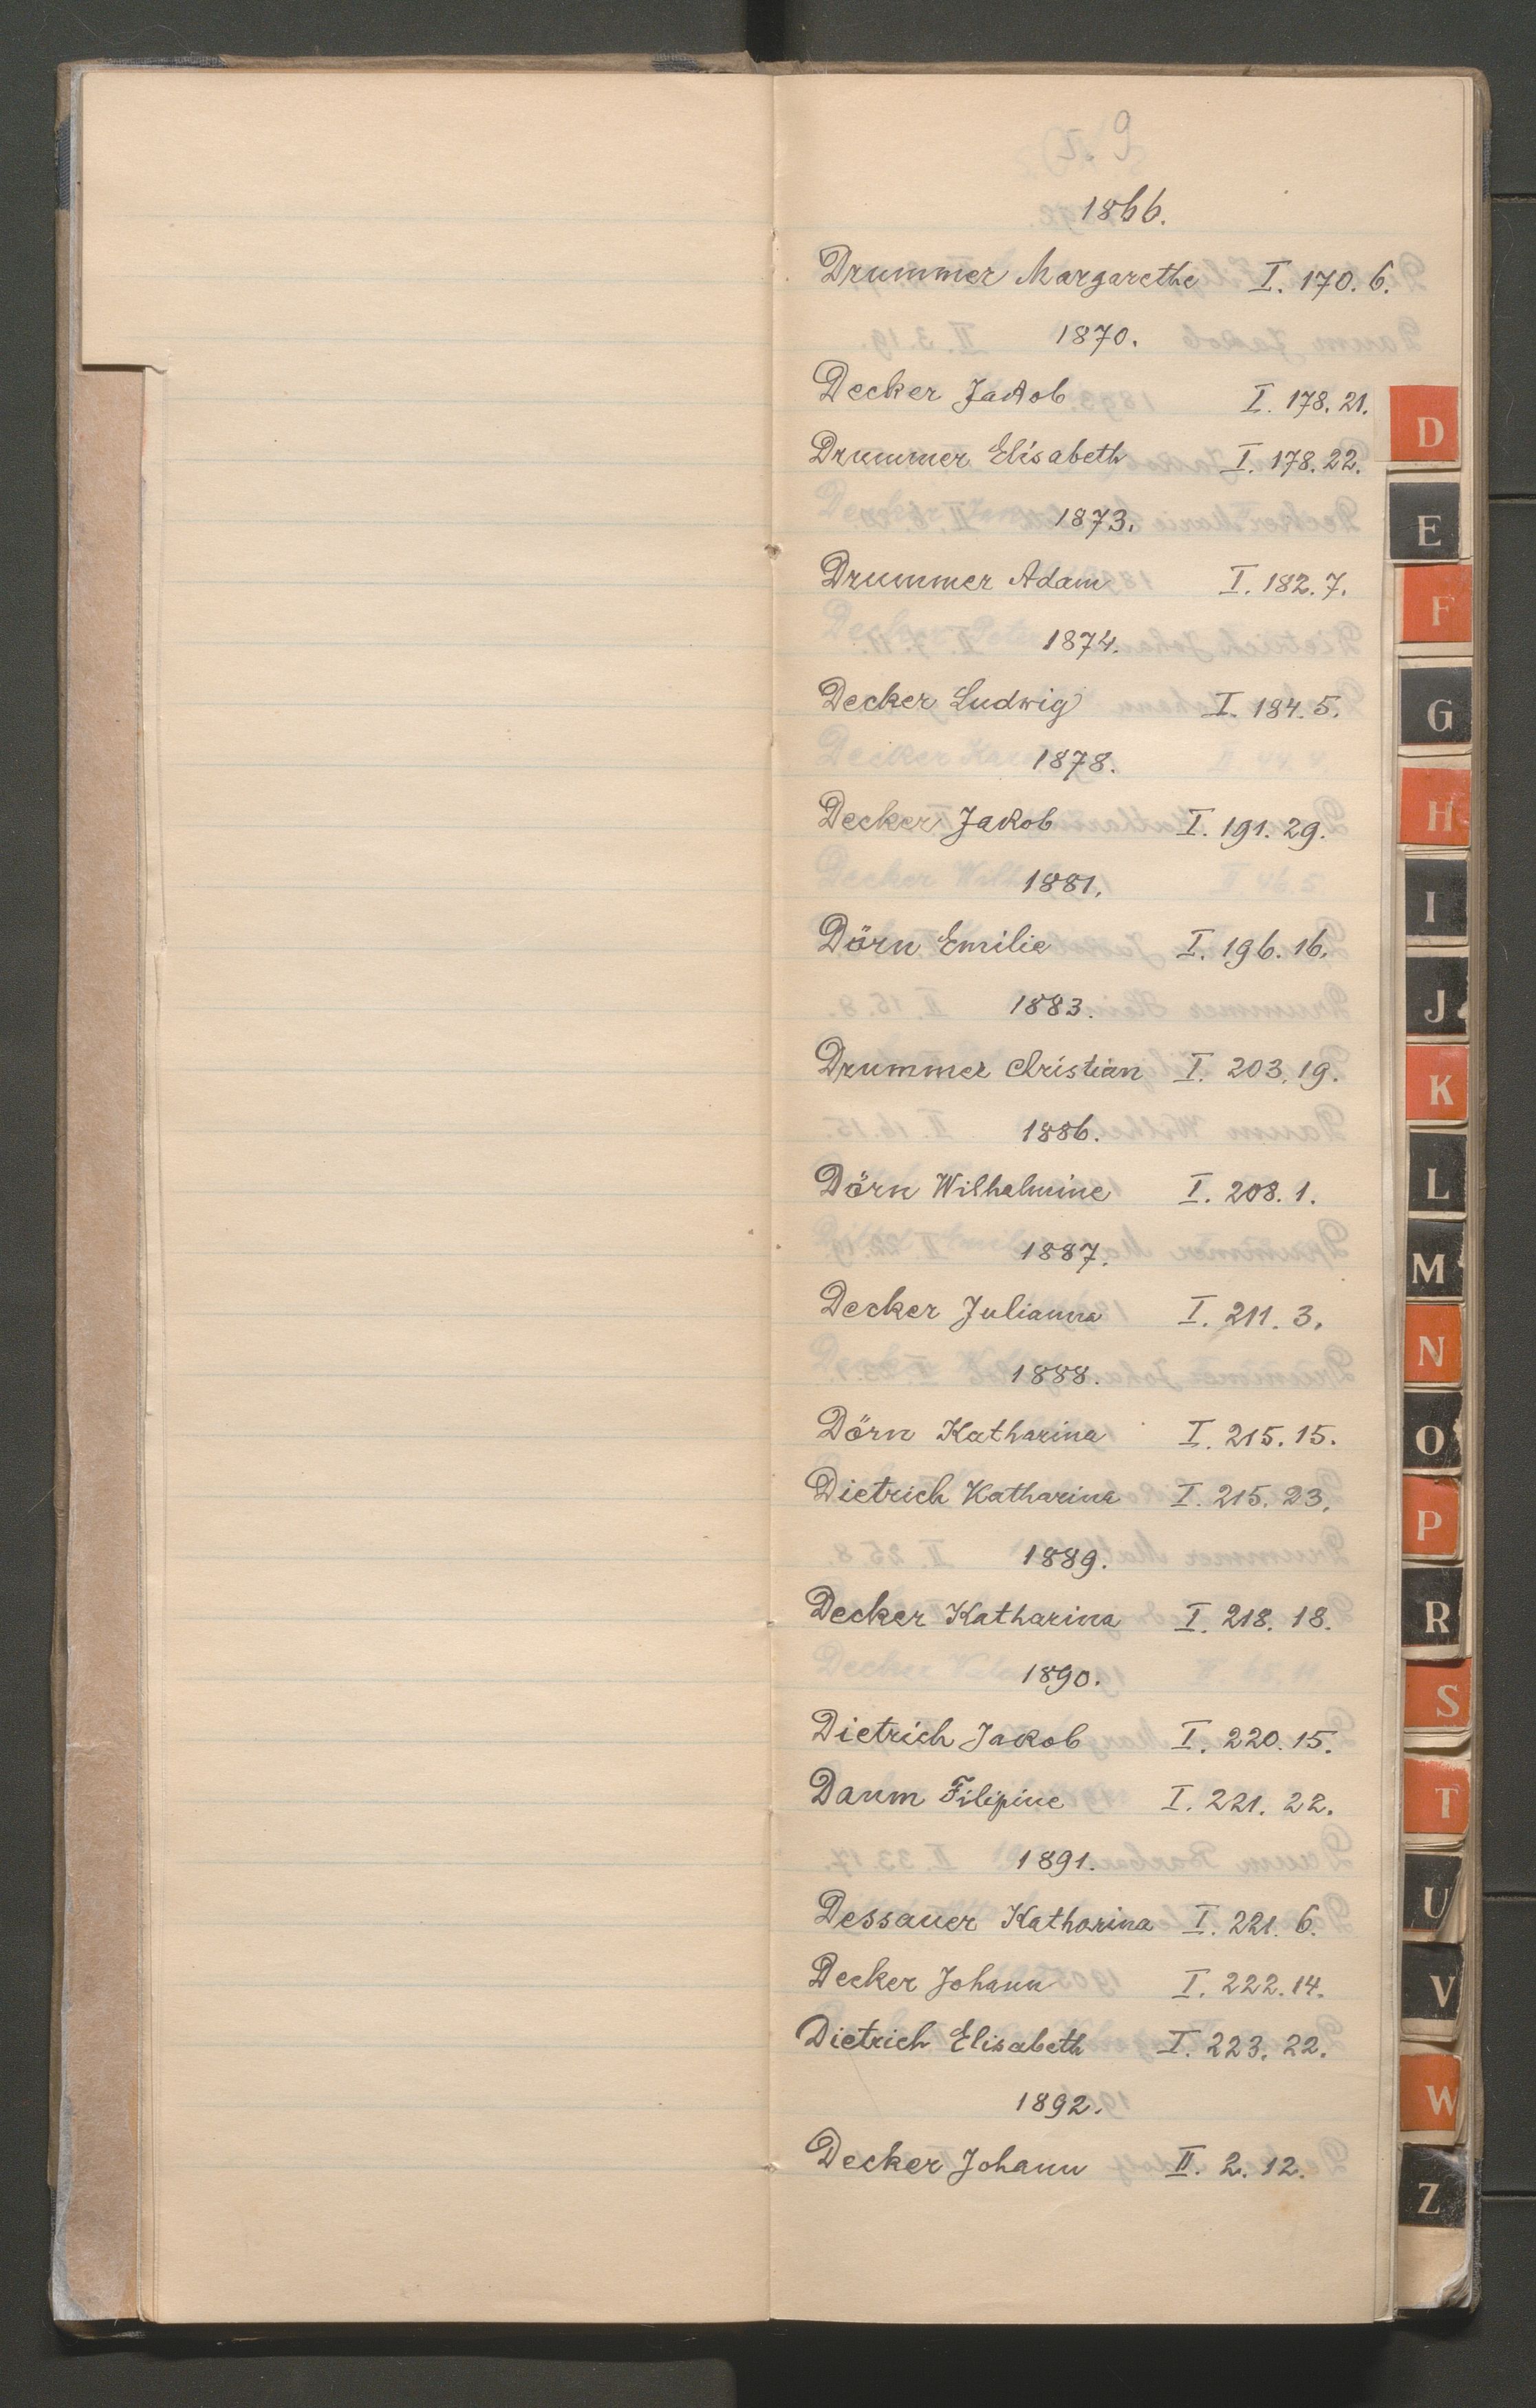 9
1866.
Drummer Margarethe I. 170. 6.
1870.
Decker Jakob I. 178. 21.
Drummer Elisabeth I. 178. 22.
1873.
Drummer Adam I. 182. 7.
1874.
Decker Ludwig I. 184. 5.
1878.
Decker Jakob I. 191. 29.
1881.
Dörn Emilie I. 196. 16.
1883.
Drummer Christian I. 203. 19.
1886.
Dörn Wilhelmine I. 208. 1.
1887.
Decker Julianna I. 211. 3.
1888.
Dörn Katharina I. 215. 15.
Dietrich Katharina I. 215. 23.
1889.
Decker Katharina I. 218. 18.
1890.
Dietrich Jakob I. 220. 15.
Daum Filipine I. 221. 22.
1891.
Dessauer Katharina I. 221. 6.
Decker Johann I. 222. 14.
Dietrich Elisabeth I. 223. 22.
1892.
Decker Johann II. 2. 12.
D
E
F
G
H
I
J
K
L
M
N
O
P
R
S
T
U
V
W
Z